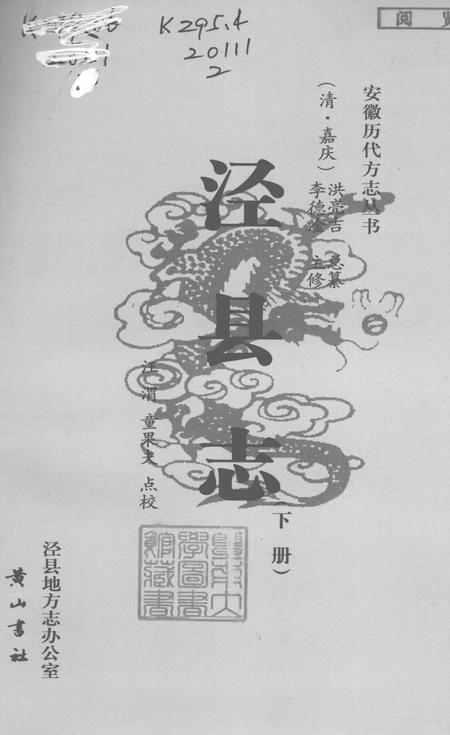 K295.4
20111
2
阅览
安徽历代方志丛书
(清·嘉庆)
洪亮吉 总纂
李德淦 主修
泾县志
(下册)
汪渭 童果夫 点校
學圖書
館藏書
泾县地方志办公室
黄山书社